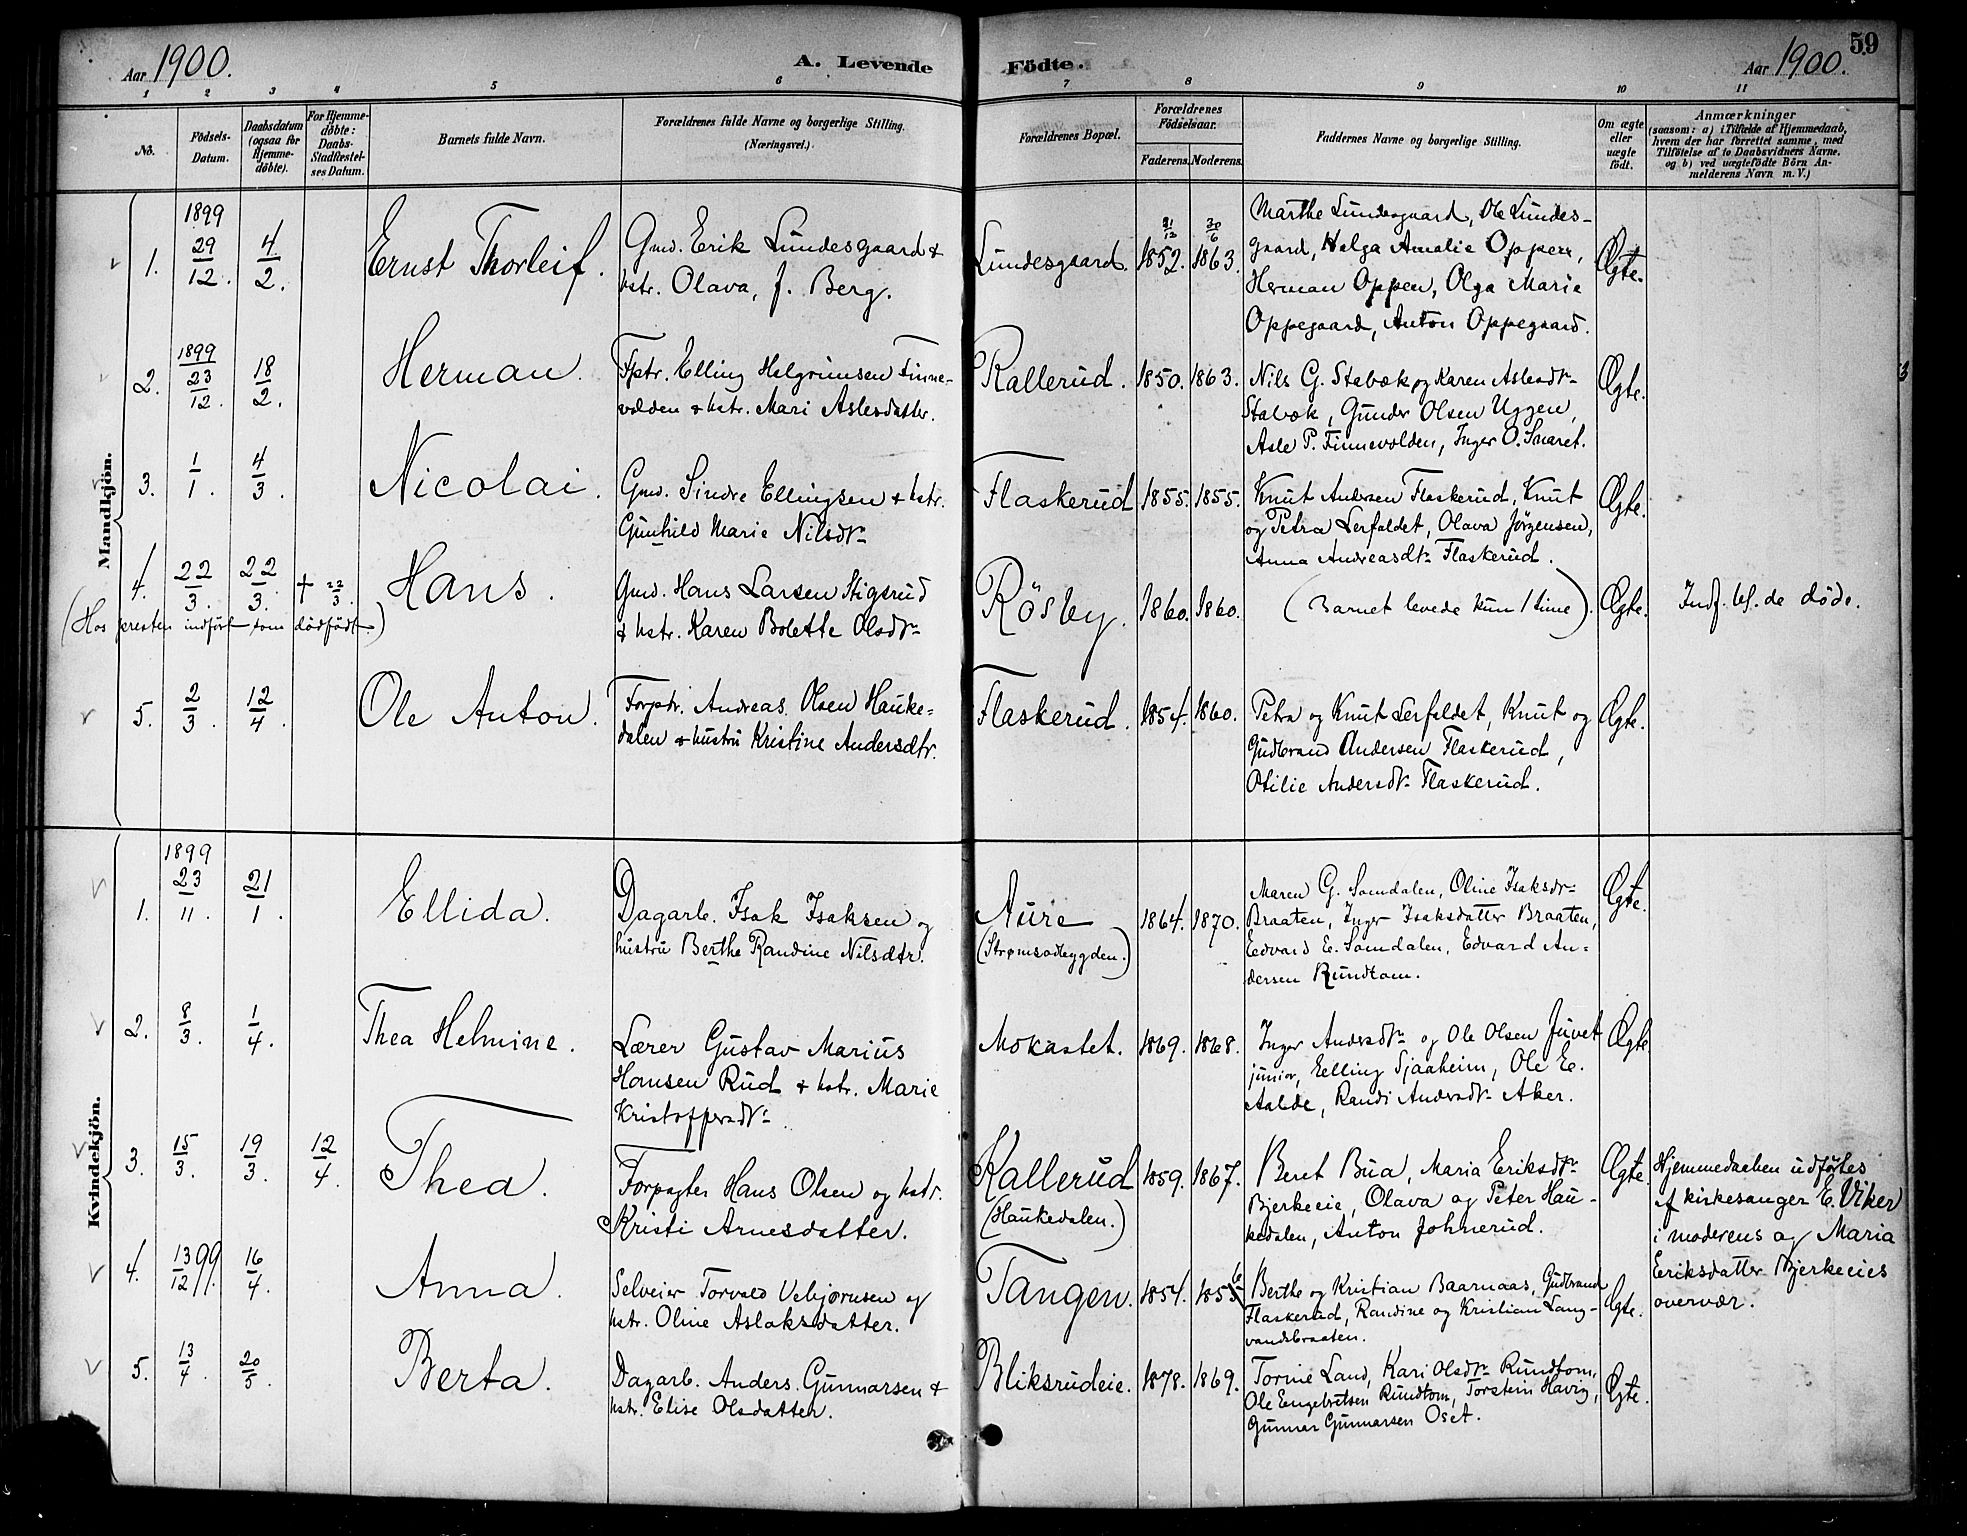 Aar 1900.
A. Levende
Födte.
Aar 1900.
59
1 2 3 4 5 6 7 8 9 10 11
No.
Födsels-
Datum.
Daabsdatum
(ogsaa for
Hjemme-
döbte).
For Hjemme-
döbte:
Daabs-
Stadfæstel-
ses Datum.
Barnets fulde Navn.
Forældrenes fulde Navne og borgerlige Stilling.
(Næringsvei.)
Forældrenes Bopæl.
Forældrenes
Födselsaar.
Faderens. Moderens.
Faddernes Navne og borgerlige Stilling.
Om ægte
eller
uægte
födt.
Anmærkninger
(saasom: a) i Tilfælde af Hjemmedaab,
hvem der har forrettet samme, med
Tilföielse af to Daabsvidners Navne,
og b) ved uægtefödte Börn An-
melderens Navn m. V.)
Mandkjön.
1. 1899 29/12. 4/2. Ernst Thorleif.
Gmd. Erik Lundesgaard &
hstr. Olava, f. Berg.
Lundesgaard. 31/12 1852. 30/6 1863.
Marthe Lundesgaard, Ole Lundes-
gaard, Helga Amalie Oppen,
Herman Oppen, Olga Marie
Oppegaard, Anton Oppegaard.
Ægte.
2. 1899 23/12. 18/2. Herman.
Fptr. Elling Helgrimsen Finne-
volden & hstr. Mari Aslesdatter.
Rallerud. 1850. 1863.
Nils G. Stabæk og Karen Aslesdtr
Stabæk, Gunder Olsen Uggen,
Asle P. Finnevolden, Inger O. Snaret.
Ægte.
3. 1/1. 4/3. Nicolai.
Gmd. Sindre Ellingsen & hstr.
Gunhild Marie Nilsdtr
Flaskerud 1855. 1855.
Knut Andersen Flaskerud, Knut
og Petra Lerfaldet, Olava Jörgensen,
Anna Andreasdtr Flaskerud.
Ægte.
4. 22/3. 22/3. † 22/3. Hans.
(Hos presten indført som dödfödt.)
Gmd. Hans Larsen Stigsrud
& hstr. Karen Bolette Olsdtr
Rösby. 1860. 1860.
(Barnet levede kun 1 time).
Ægte.
Indf. bl. de döde.
5. 2/3. 12/4. Ole Anton.
Forptr. Andreas Olsen Hauke-
dalen & hustru Kristine Andersdtr.
Flaskerud. 1854. 1860.
Petra og Knut Lerfaldet, Knut og
Gudbrand Andersen Flaskerud,
Otilie Andersdtr Flaskerud.
Ægte.
Kvindekjön.
1. 1899 23/11. 21/1. Ellida.
Dagarb. Isak Isaksen og
hustru Berthe Randine Nilsdtr.
Aure
(Strømsodbygden.)
1864. 1870.
Maren G. Somdalen, Oline Isaksdr
Braaten, Inger Isaksdatter Braaten,
Edvard E. Somdalen, Edvard An-
dersen Rundtom.
Ægte.
2. 8/3. 1/4. Thea Helmine.
Lærer Gustav Marius
Hansen Rud & hstr. Marie
Kristoffersdtr.
Mokastet. 1869. 1868.
Inger Andersdtr og Ole Olsen Juvet
junior, Elling Sjaaheim, Ole E.
Aalde, Randi Andersdtr Aker.
Ægte.
3. 15/3. 19/3. 12/4. Thea.
Forpagter Hans Olsen og hstr.
Kristi Arnesdatter.
Kallerud
(Haukedalen.)
1859. 1867.
Beret Bua, Maria Eriksdtr
Bjerkeeie, Olava og Peter Hau-
kedalen, Anton Johnerud.
Ægte.
Hjemmedaaben udførtes
af kirkesanger E. Viker
i moderens og Maria
Eriksdatter Bjerkeeies
overvær.
4. 13/12 99. 16/4. Anna.
Selveier Torvald Vebjørnsen og
hstr. Oline Aslaksdatter.
Tangen. 1854. 1855 6
Berthe og Kristian Baarnaas, Gudbrand
Flaskerud, Randine og Kristian Lang-
vandsbraaten.
Ægte.
5. 13/4. 20/5. Berta.
Dagarb. Anders Gunnarsen &
hstr. Elise Olsdatter.
Bliksrudeie. 1878. 1869.
Torine Land, Kari Olsdtr Rundtom,
Ole Engebretsen Rundtom, Torstein Havig,
Gunnar Gunnarsen Oset.
Ægte.